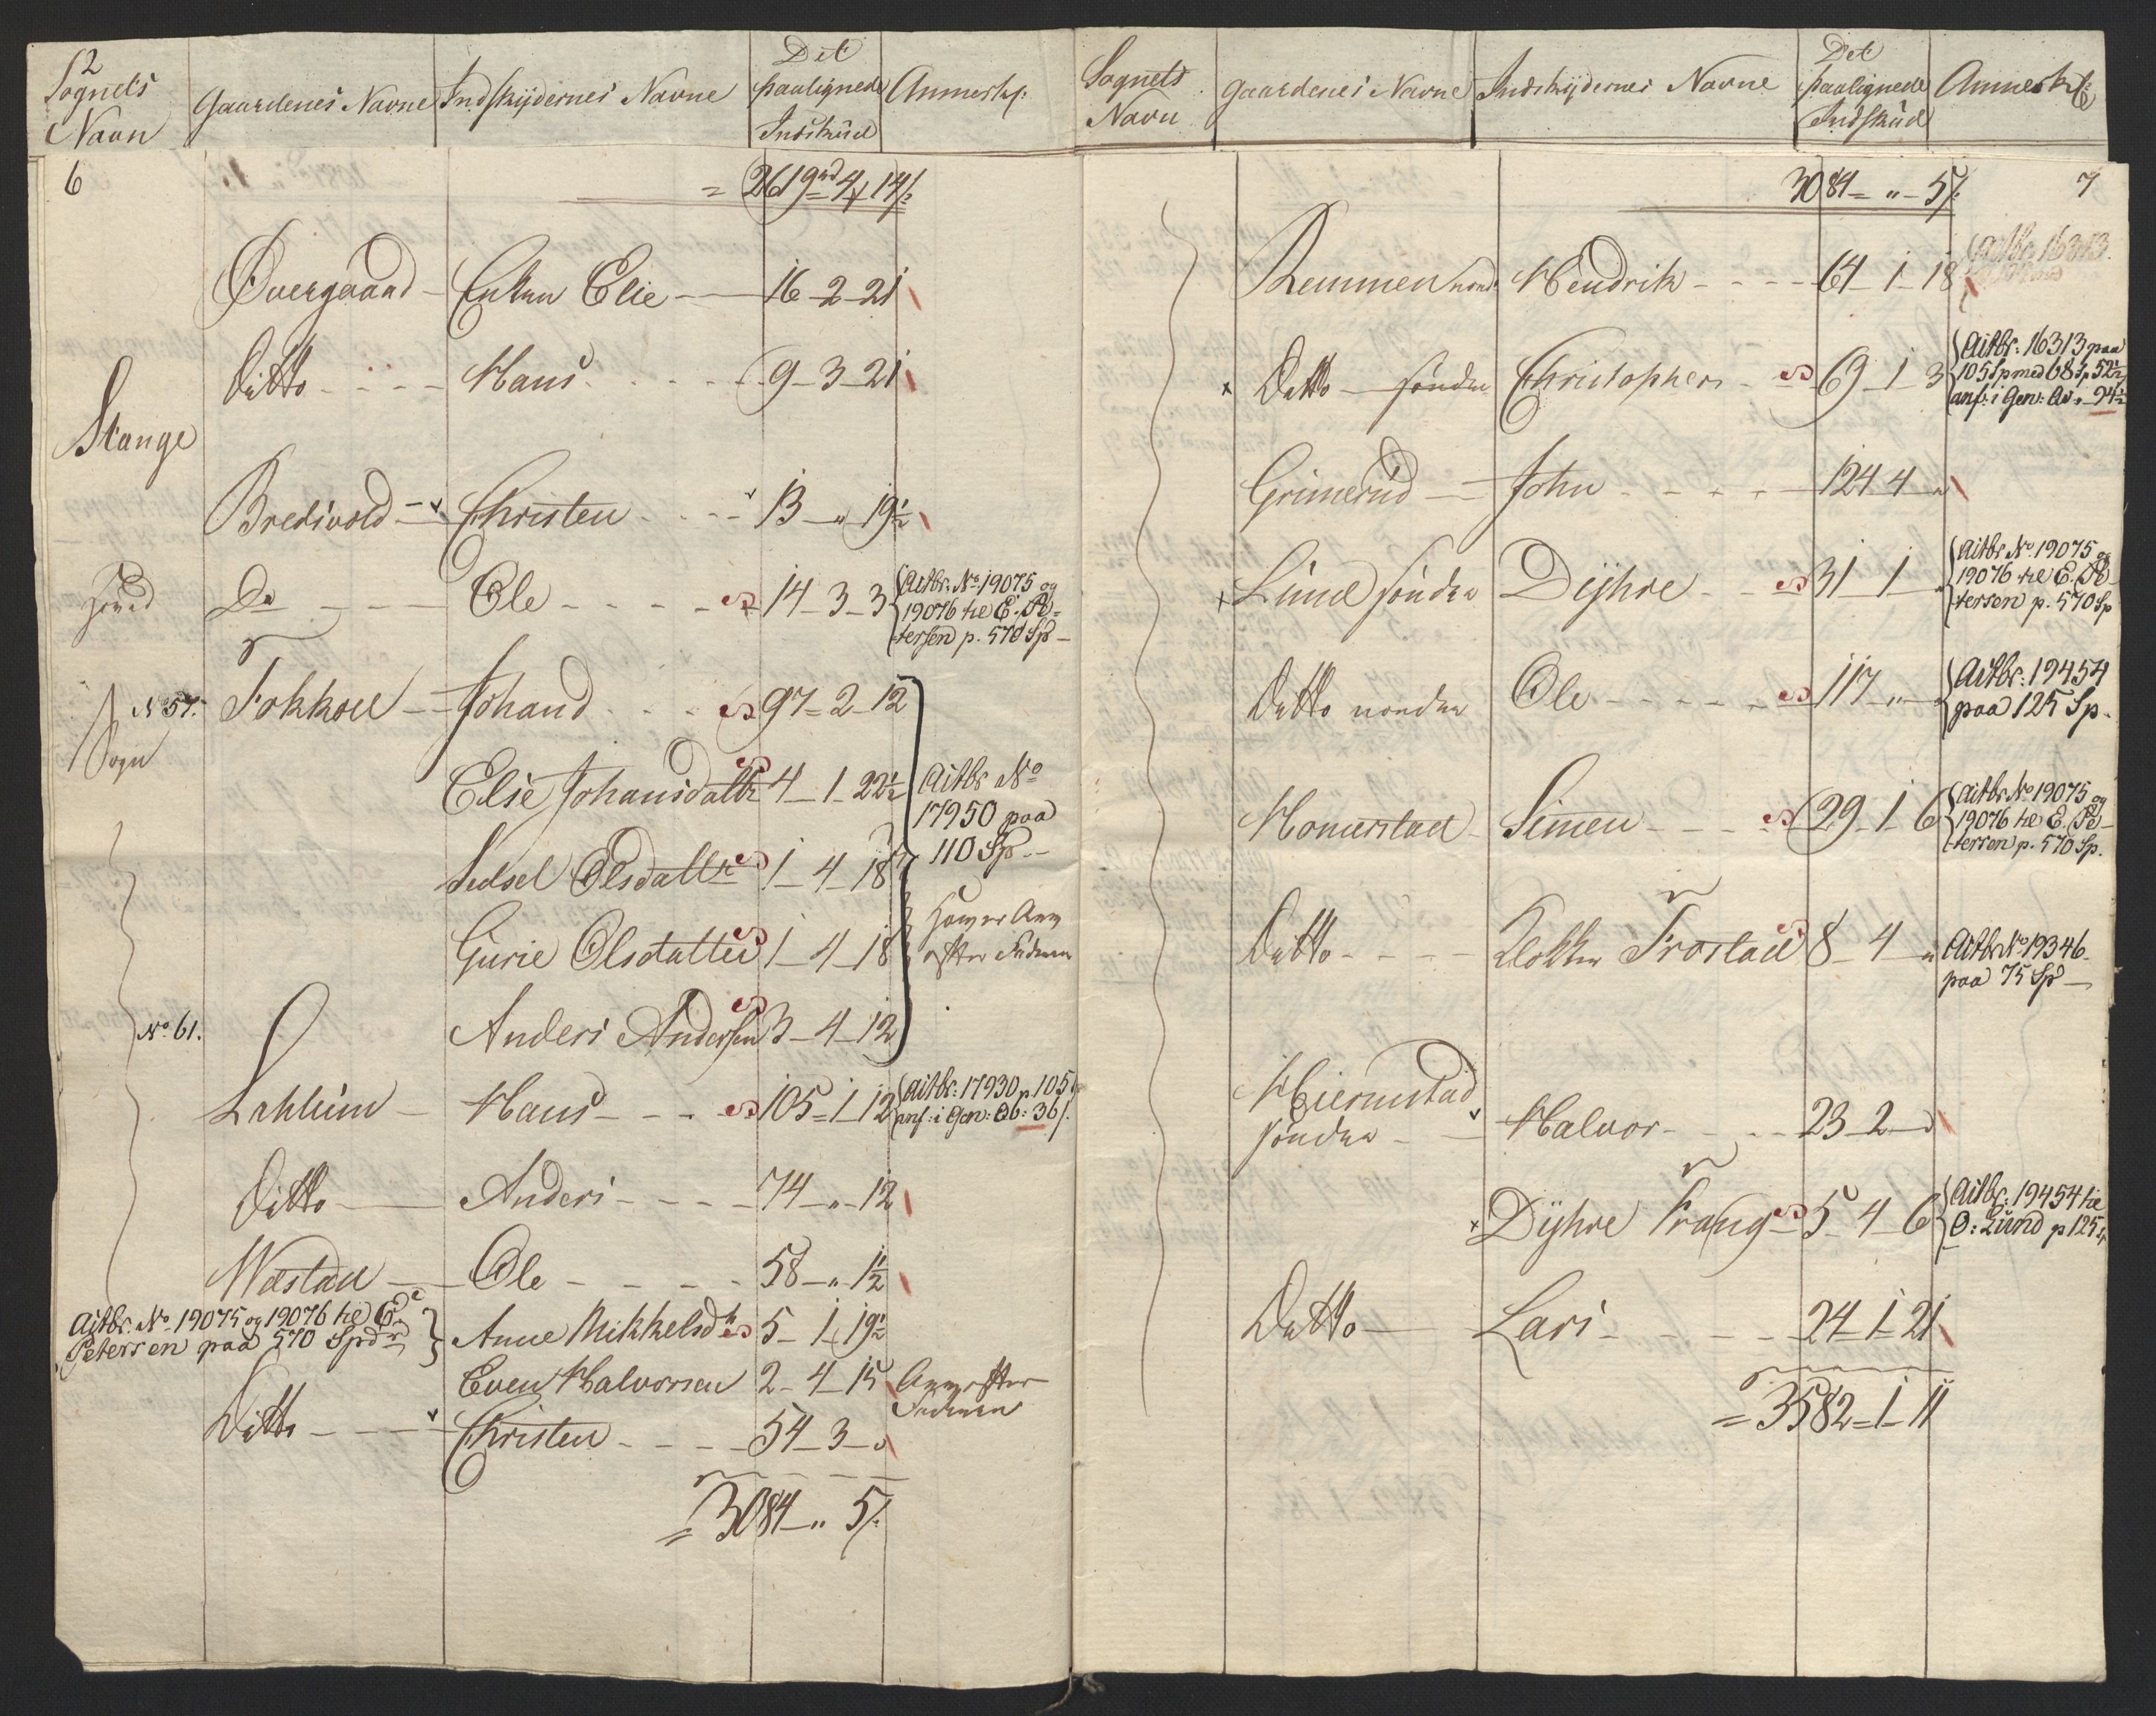 2
Sognets Navn | Gaardenes Navne | Indskydernes Navne | Det paalignede Indskud | Anmerkg:
6
= 2619 4 14
Øvergaard - Enken Elie - 16 - 2 - 21
Ditto - Hans - 9 - 3 - 21
Stange
Bredivold - Christen - 13 - " - 19½
Hoved Do - Ole - 14 - 3 - 3 Aitbr. No. 19075 og
19076 til E. Pe-
tersen p. 570 Sp
No 57. Fokkoll - Johand - 97 - 2 - 12
Sogn
Elsie Johansdattr 4 - 1 - 22½ Aitbr No
17950 paa
110 Sp
Sidsel Olsdattr 1 - 4 - 18
Gurie Olsdatter 1 - 4 - 18
efter
No. 61. Anders Andersen 3 - 4 - 12
Lahlum - Hans - 105 - 1 - 12 Aitbr: 17930 p. 105
anf: i Gen: Qb: 36
Ditto - Anders - 74 - " - 12
Wæstad - Ole - 58 - " - 1½
Aitbr. No. 19075 og 19076 til
Petersen paa 570 Spd
Anne Mikkelsd 5 - 1 - 19½
Even Halvorsen 2 - 4 - 15
Ditto - Christen - 54 - 3 - "
= 3084 - " 5
Sognets Navn | Gaardenes Navne | Indskydernes Navne | Det paalignede Indskud | Anmerkg:
7
3084 - " - 5
Remmen nord Hendrik - 64 - 1 - 18 Aitbr. 16313.
Ditto - søndre Christopher - 69 - 1 - 3 Aitbr: 16313 paa
105 Sp med 68 Sp 52½
anf: i Gen: 94½
Grimerud - John - 124 4 - "
Lund søndre Dyhre - 31 - 1 - " Aitbr No. 19075 og
19076 til E. Pe-
tersen p. 570 Sp
Ditto nordre Ole - 117 - " - Aitbr: 19454
paa 125 Sp.
Homerstad - Simen - 29 - 1 - 6 Aitbr No 19075 og
19076 til E. Pe-
tersen p. 570 Sp.
Ditto - Frostad 8 - 4 - " Aitbr No 19346
paa 75 Sp
Hiermstad
søndre - Halvor - 23 - 2 - "
Dyhre Krang 5 - 4 - 6 Aitbr: 19454 til
O: Lund p 125 Sp
Ditto - Lars - 24 - 1 - 21
= 3582 = 1 - 11